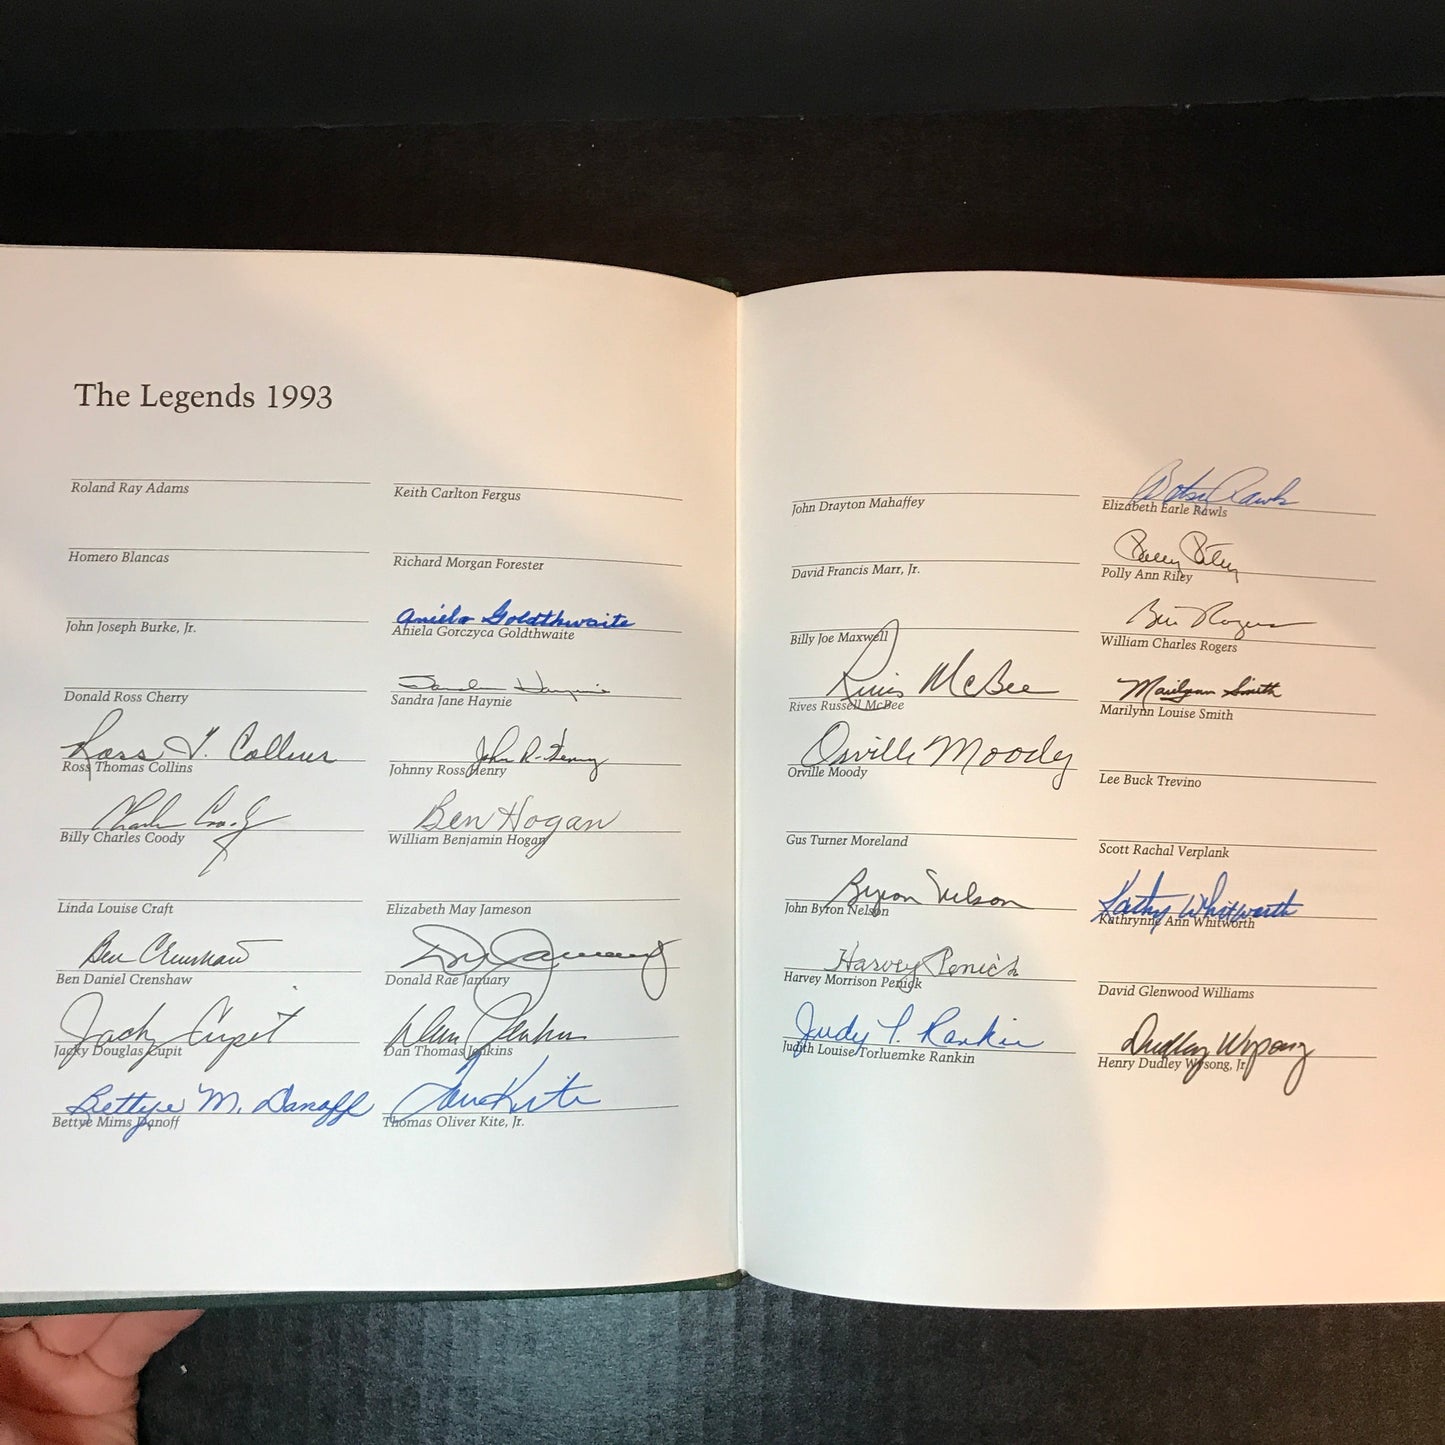 The Legends 1993
Roland Ray Adams
Homero Blancas
John Joseph Burke, Jr.
Donald Ross Cherry
Ross T. Collins
Ross Thomas Collins
Charles Coody
Billy Charles Coody
Linda Louise Craft
Ben Crenshaw
Ben Daniel Crenshaw
Jacky Cupit
Jacky Douglas Cupit
Bettye M. Danoff
Bettye Mims Danoff
Keith Carlton Fergus
Richard Morgan Forester
Aniela Goldthwaite
Aniela Gorczyca Goldthwaite
Sandra Haynie
Sandra Jane Haynie
John R. Henry
Johnny Ross Henry
Ben Hogan
William Benjamin Hogan
Elizabeth May Jameson
Don January
Donald Rae January
Dan Jenkins
Dan Thomas Jenkins
Tom Kite
Thomas Oliver Kite, Jr.
John Drayton Mahaffey
David Francis Marr, Jr.
Billy Joe Maxwell
Rives McBee
Rives Russell McBee
Orville Moody
Orville Moody
Gus Turner Moreland
Byron Nelson
John Byron Nelson
Harvey Penick
Harvey Morrison Penick
Judy T. Rankin
Judith Louise Torluemke Rankin
Betsy Rawls
Elizabeth Earle Rawls
Polly Riley
Polly Ann Riley
Bill Rogers
William Charles Rogers
Marilynn Smith
Marilynn Louise Smith
Lee Buck Trevino
Scott Rachal Verplank
Kathy Whitworth
Kathrynne Ann Whitworth
David Glenwood Williams
Dudley Wysong
Henry Dudley Wysong, Jr.